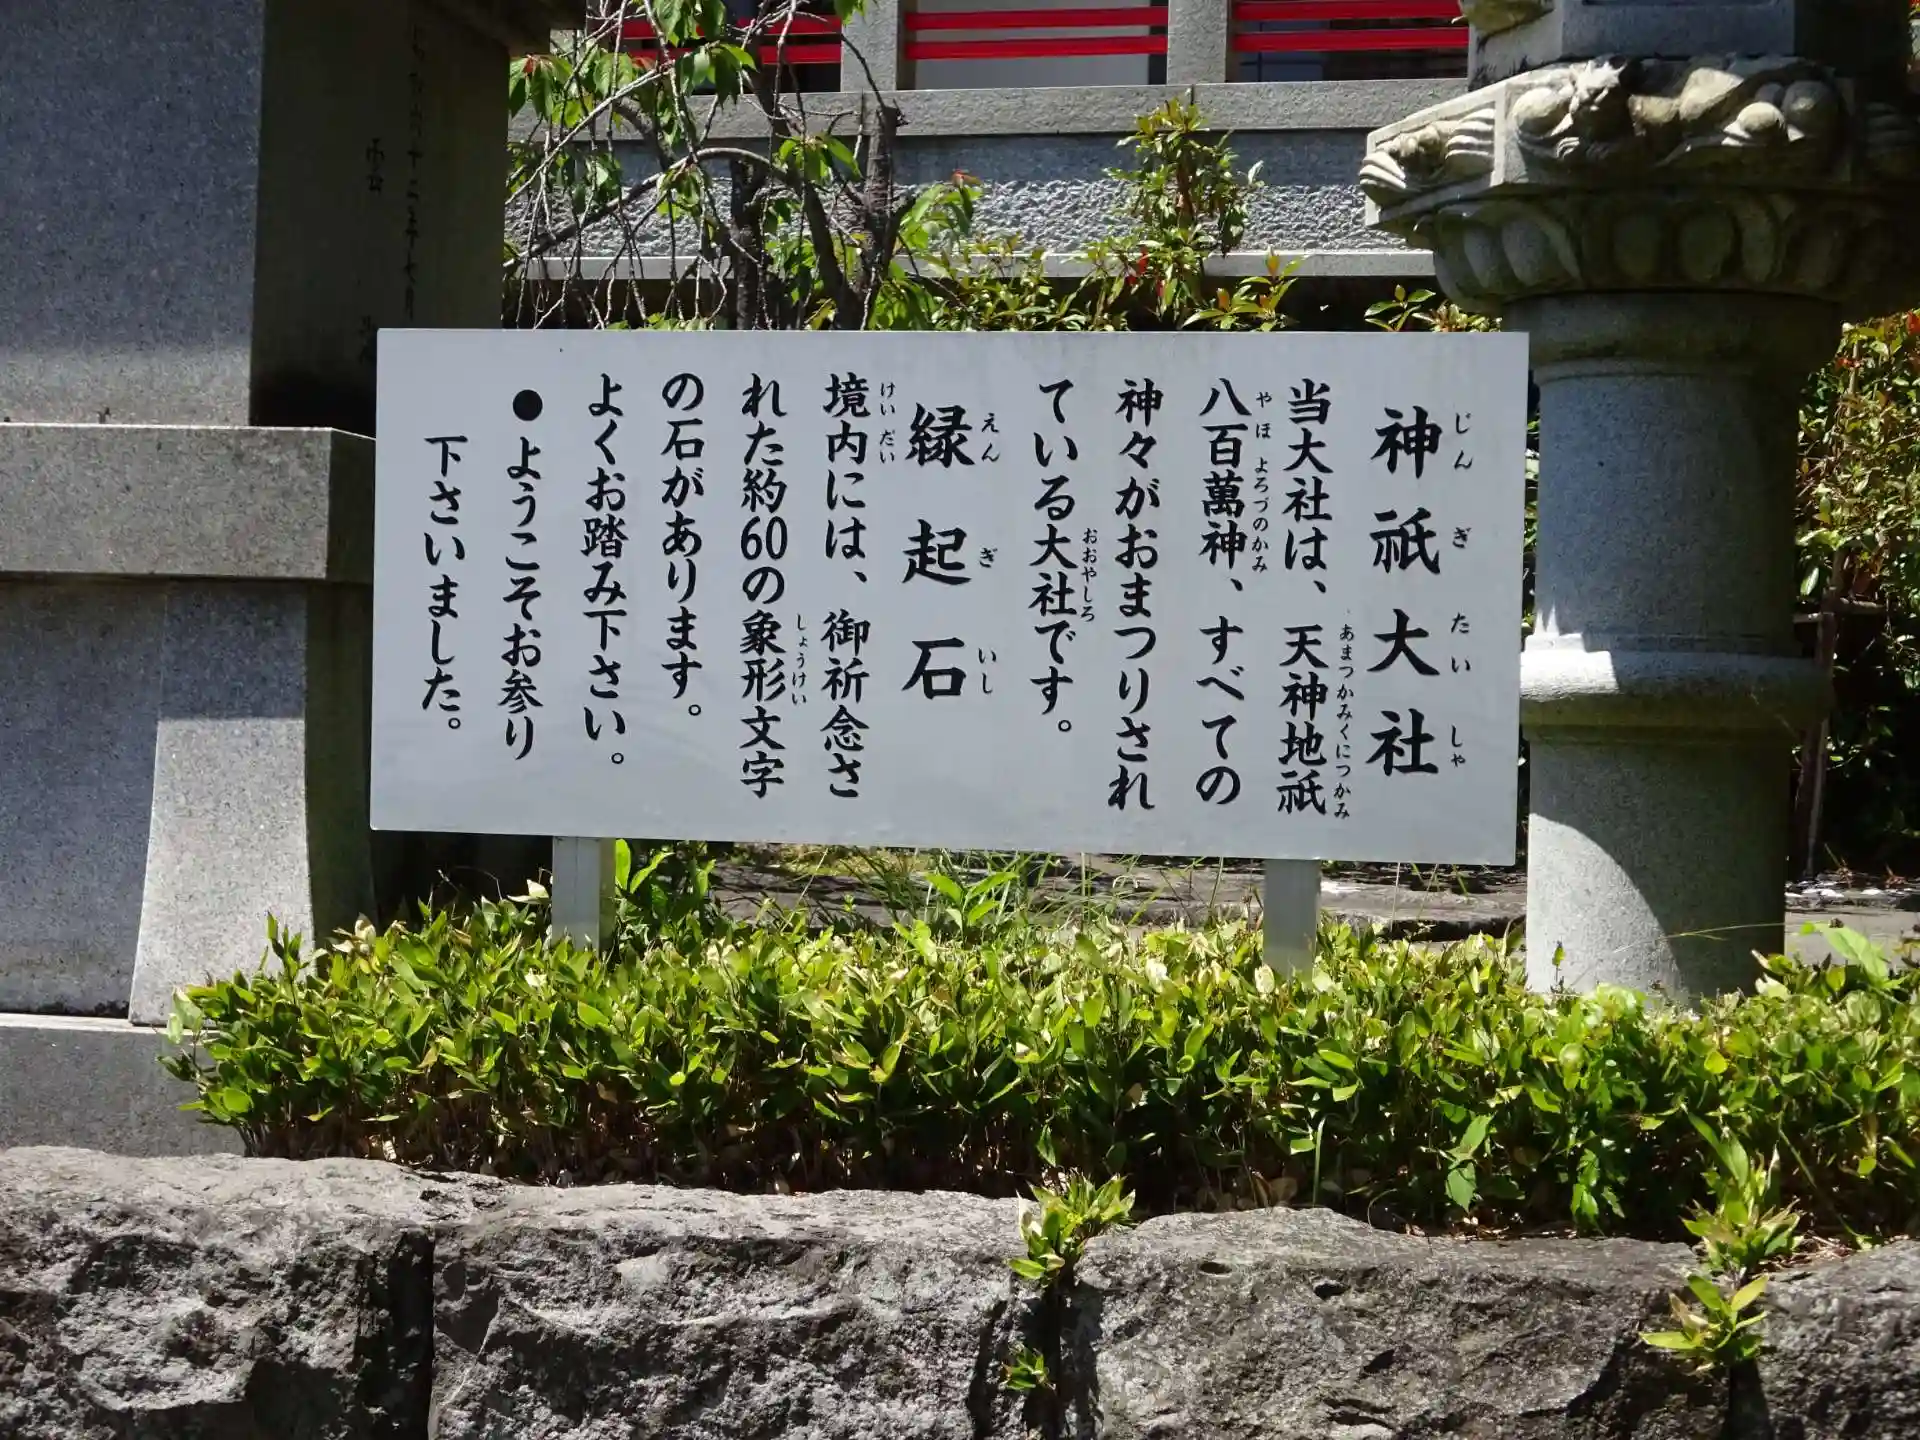 神祇大社
じんぎたいしゃ
当大社は、天神地祇
あまつかみくにつかみ
八百萬神、すべての
やほよろづのかみ
神々がおまつりされ
ている大社です。
おおやしろ
縁起石
えんぎいし
境内には、御祈念さ
けいだい
れた約60の象形文字
しょうけい
の石があります。
よくお踏み下さい。
●ようこそお参り
下さいました。